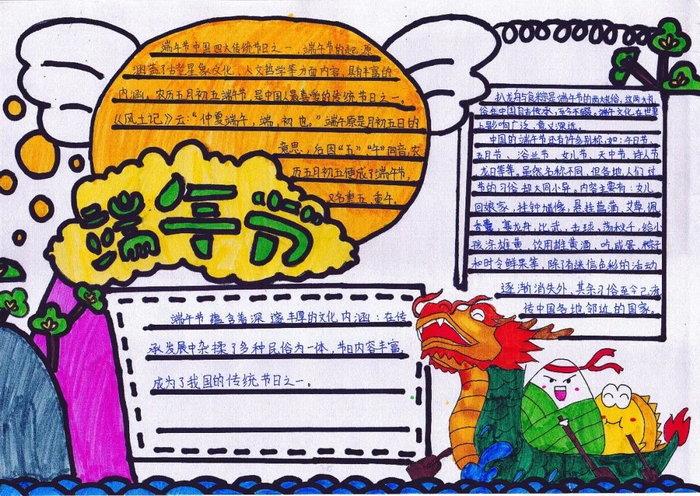 端午节中国四大传统节日之一，端午节的起源
涵盖了古老星象文化、人文哲学等方面内容，具有丰富的
内涵，农历五月初五端午节，是中国人最重要的传统节日之一。
《风土记》云："仲夏端午，端，初也。"端午原是月初五日的
意思，后因"五""午"同音，农
历五月初五便成了端午节，
又名重五、重午。
端午节
扒龙舟与食粽是端午节的两大礼俗，这两大礼
俗在中国自古传承，至今不辍，端午文化在世界
上影响广泛，意义深远。
中国的端午节还有许多别称，如：午日节、
五月节、浴兰节、女儿节、天中节、诗人节、
龙日等等。虽然名称不同，但各地人们过
节的习俗却大同小异。内容主要有：女儿
回娘家，挂钟馗像，悬挂菖蒲、艾草，佩
香囊，赛龙舟，比武，击球，荡秋千，给小
孩涂雄黄，饮用雄黄酒，吃咸蛋、粽子
和时令鲜果等，除了有迷信色彩的活动
逐渐消失外，其余习俗至今已流
传中国各地及邻近的国家。
端午节蕴含着深邃丰厚的文化内涵，在传
承发展中杂揉了多种民俗为一体，节日内容丰富，
成为了我国的传统节日之一。